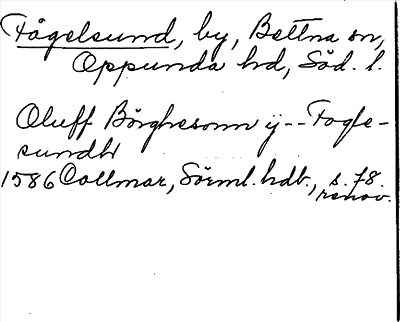 Fågelsund, by, Bettna sn,
Oppunda hd, Söd. l.
Oluff Börghesonn ÿ -- Fogle-
sundh
1586 Collmar, Sörml. hdb., s. 78.
renov.